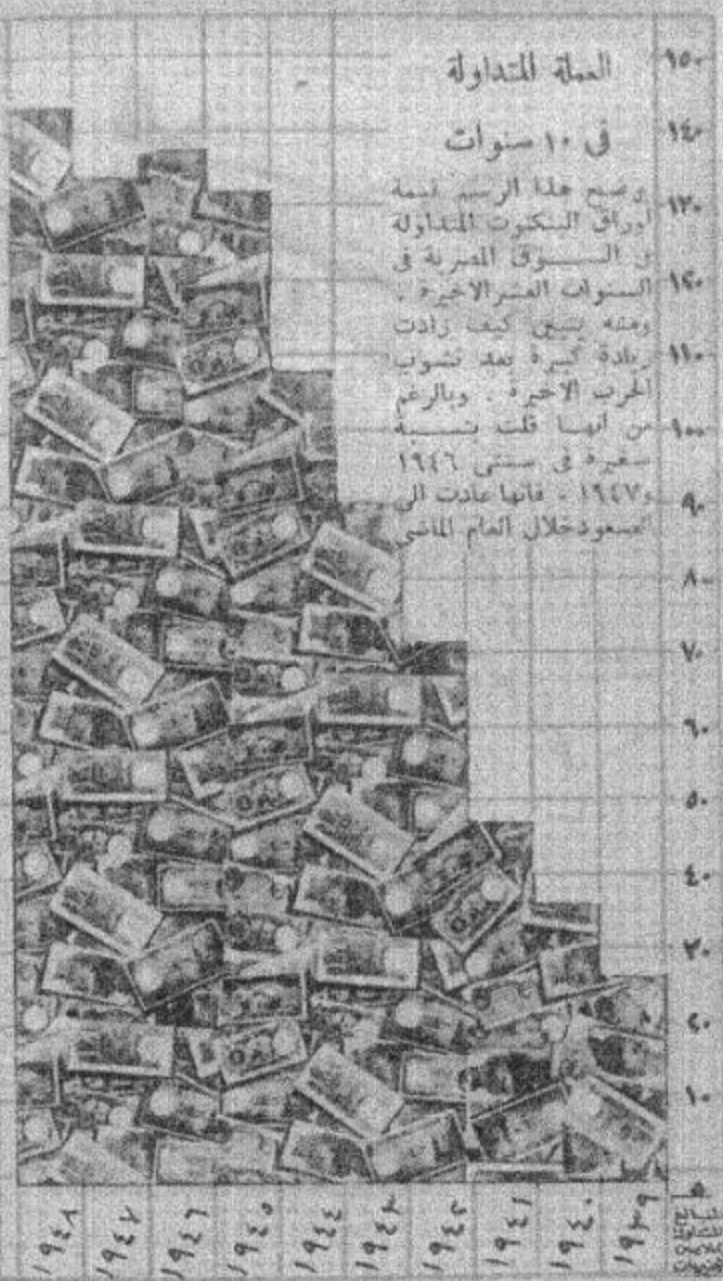 العملة المتداولة
فى ١٠ سنوات
يوضح هذا الرسم قيمة
أوراق البنكنوت المتداولة
فى الســوق المصرية فى
السنوات العشر الاخيرة .
ومنه يتبين كيف زادت
زيادة كبيرة بعد نشوب
الحرب الاخيرة . وبالرغم
من أنها قلت بنسبة
صغيرة فى سنتى ١٩٤٦
و١٩٤٧ ، فانها عادت الى
الصعود خلال العام الماضى
١٥٠
١٤٠
١٣٠
١٢٠
١١٠
١٠٠
٩٠
٨٠
٧٠
٦٠
٥٠
٤٠
٣٠
٢٠
١٠
١٩٣٩
١٩٤٠
١٩٤١
١٩٤٢
١٩٤٣
١٩٤٤
١٩٤٥
١٩٤٦
١٩٤٧
١٩٤٨